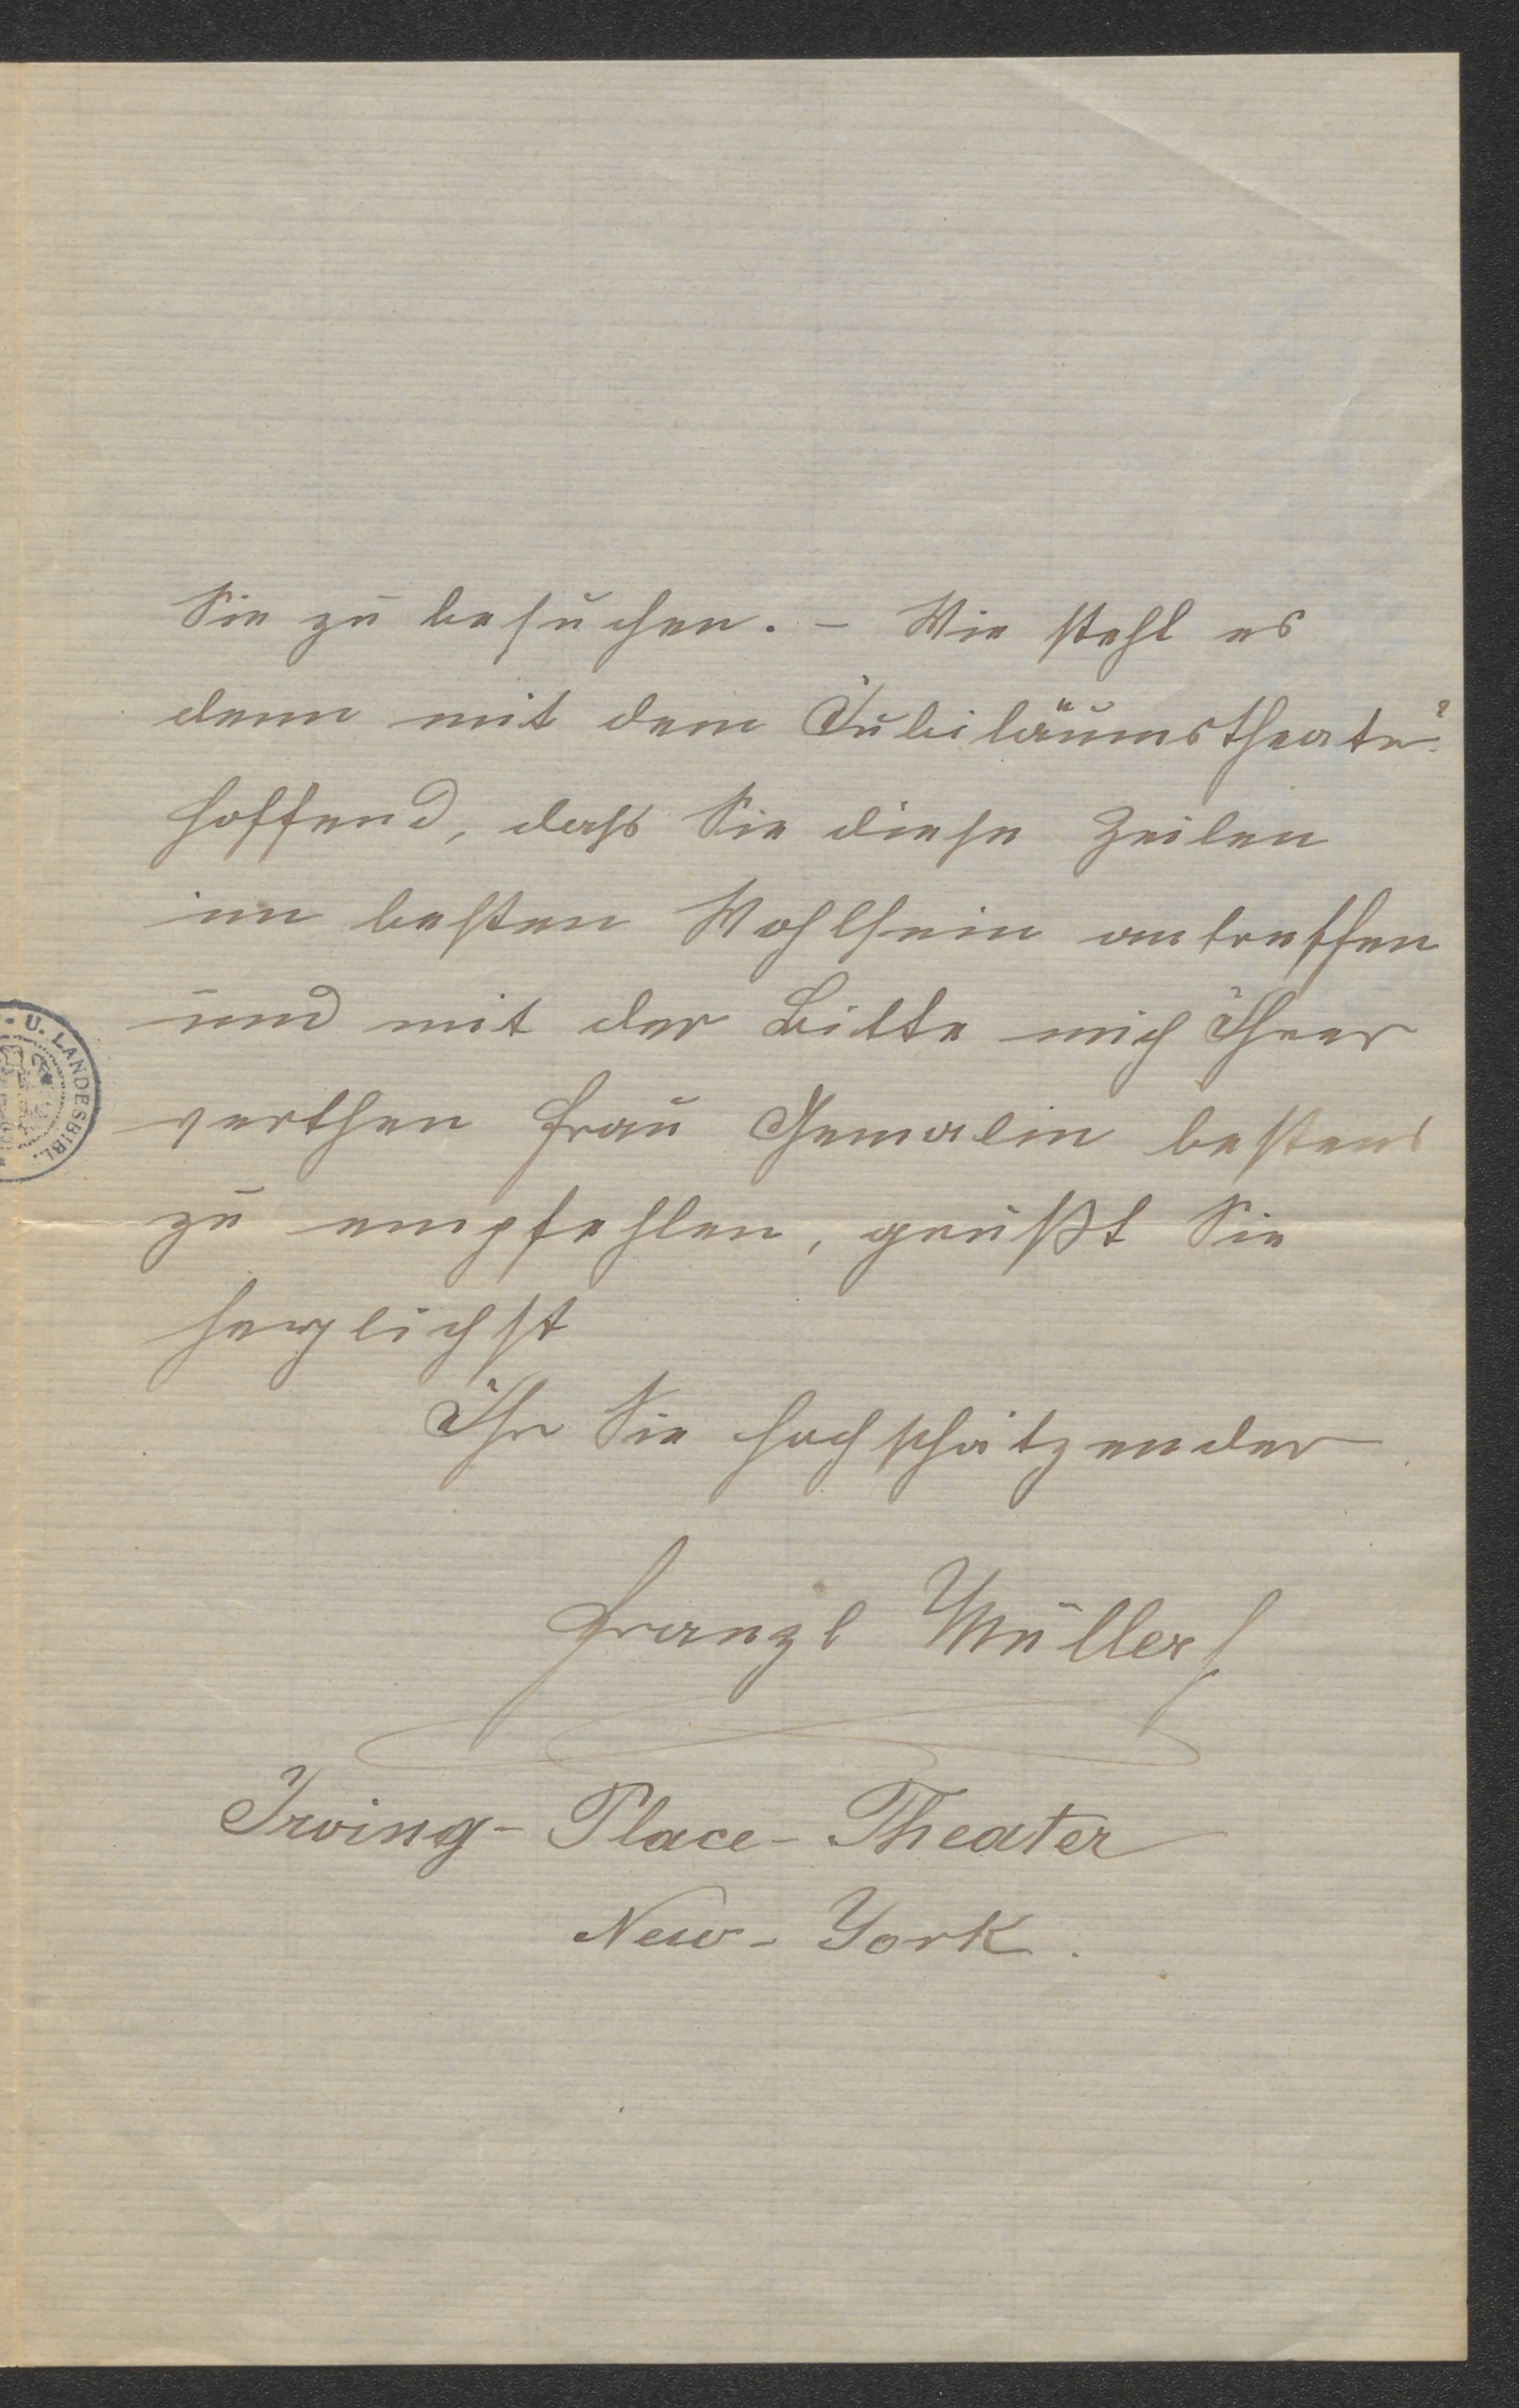 Sie zu besuchen. – Wie steht es
denn mit dem Jubiläumstheater?
Hoffend, dass Sie diese Zeilen
im besten Wohlsein antreffen
und mit der Bitte mich Ihrer
werthen Frau Gemalin bestens
zu empfehlen, grüßt Sie
herzlichst
Ihr Sie hochschätzender
Franzl Müller
Irving-Place-Theater
New-York.
U. LANDESBIBL.